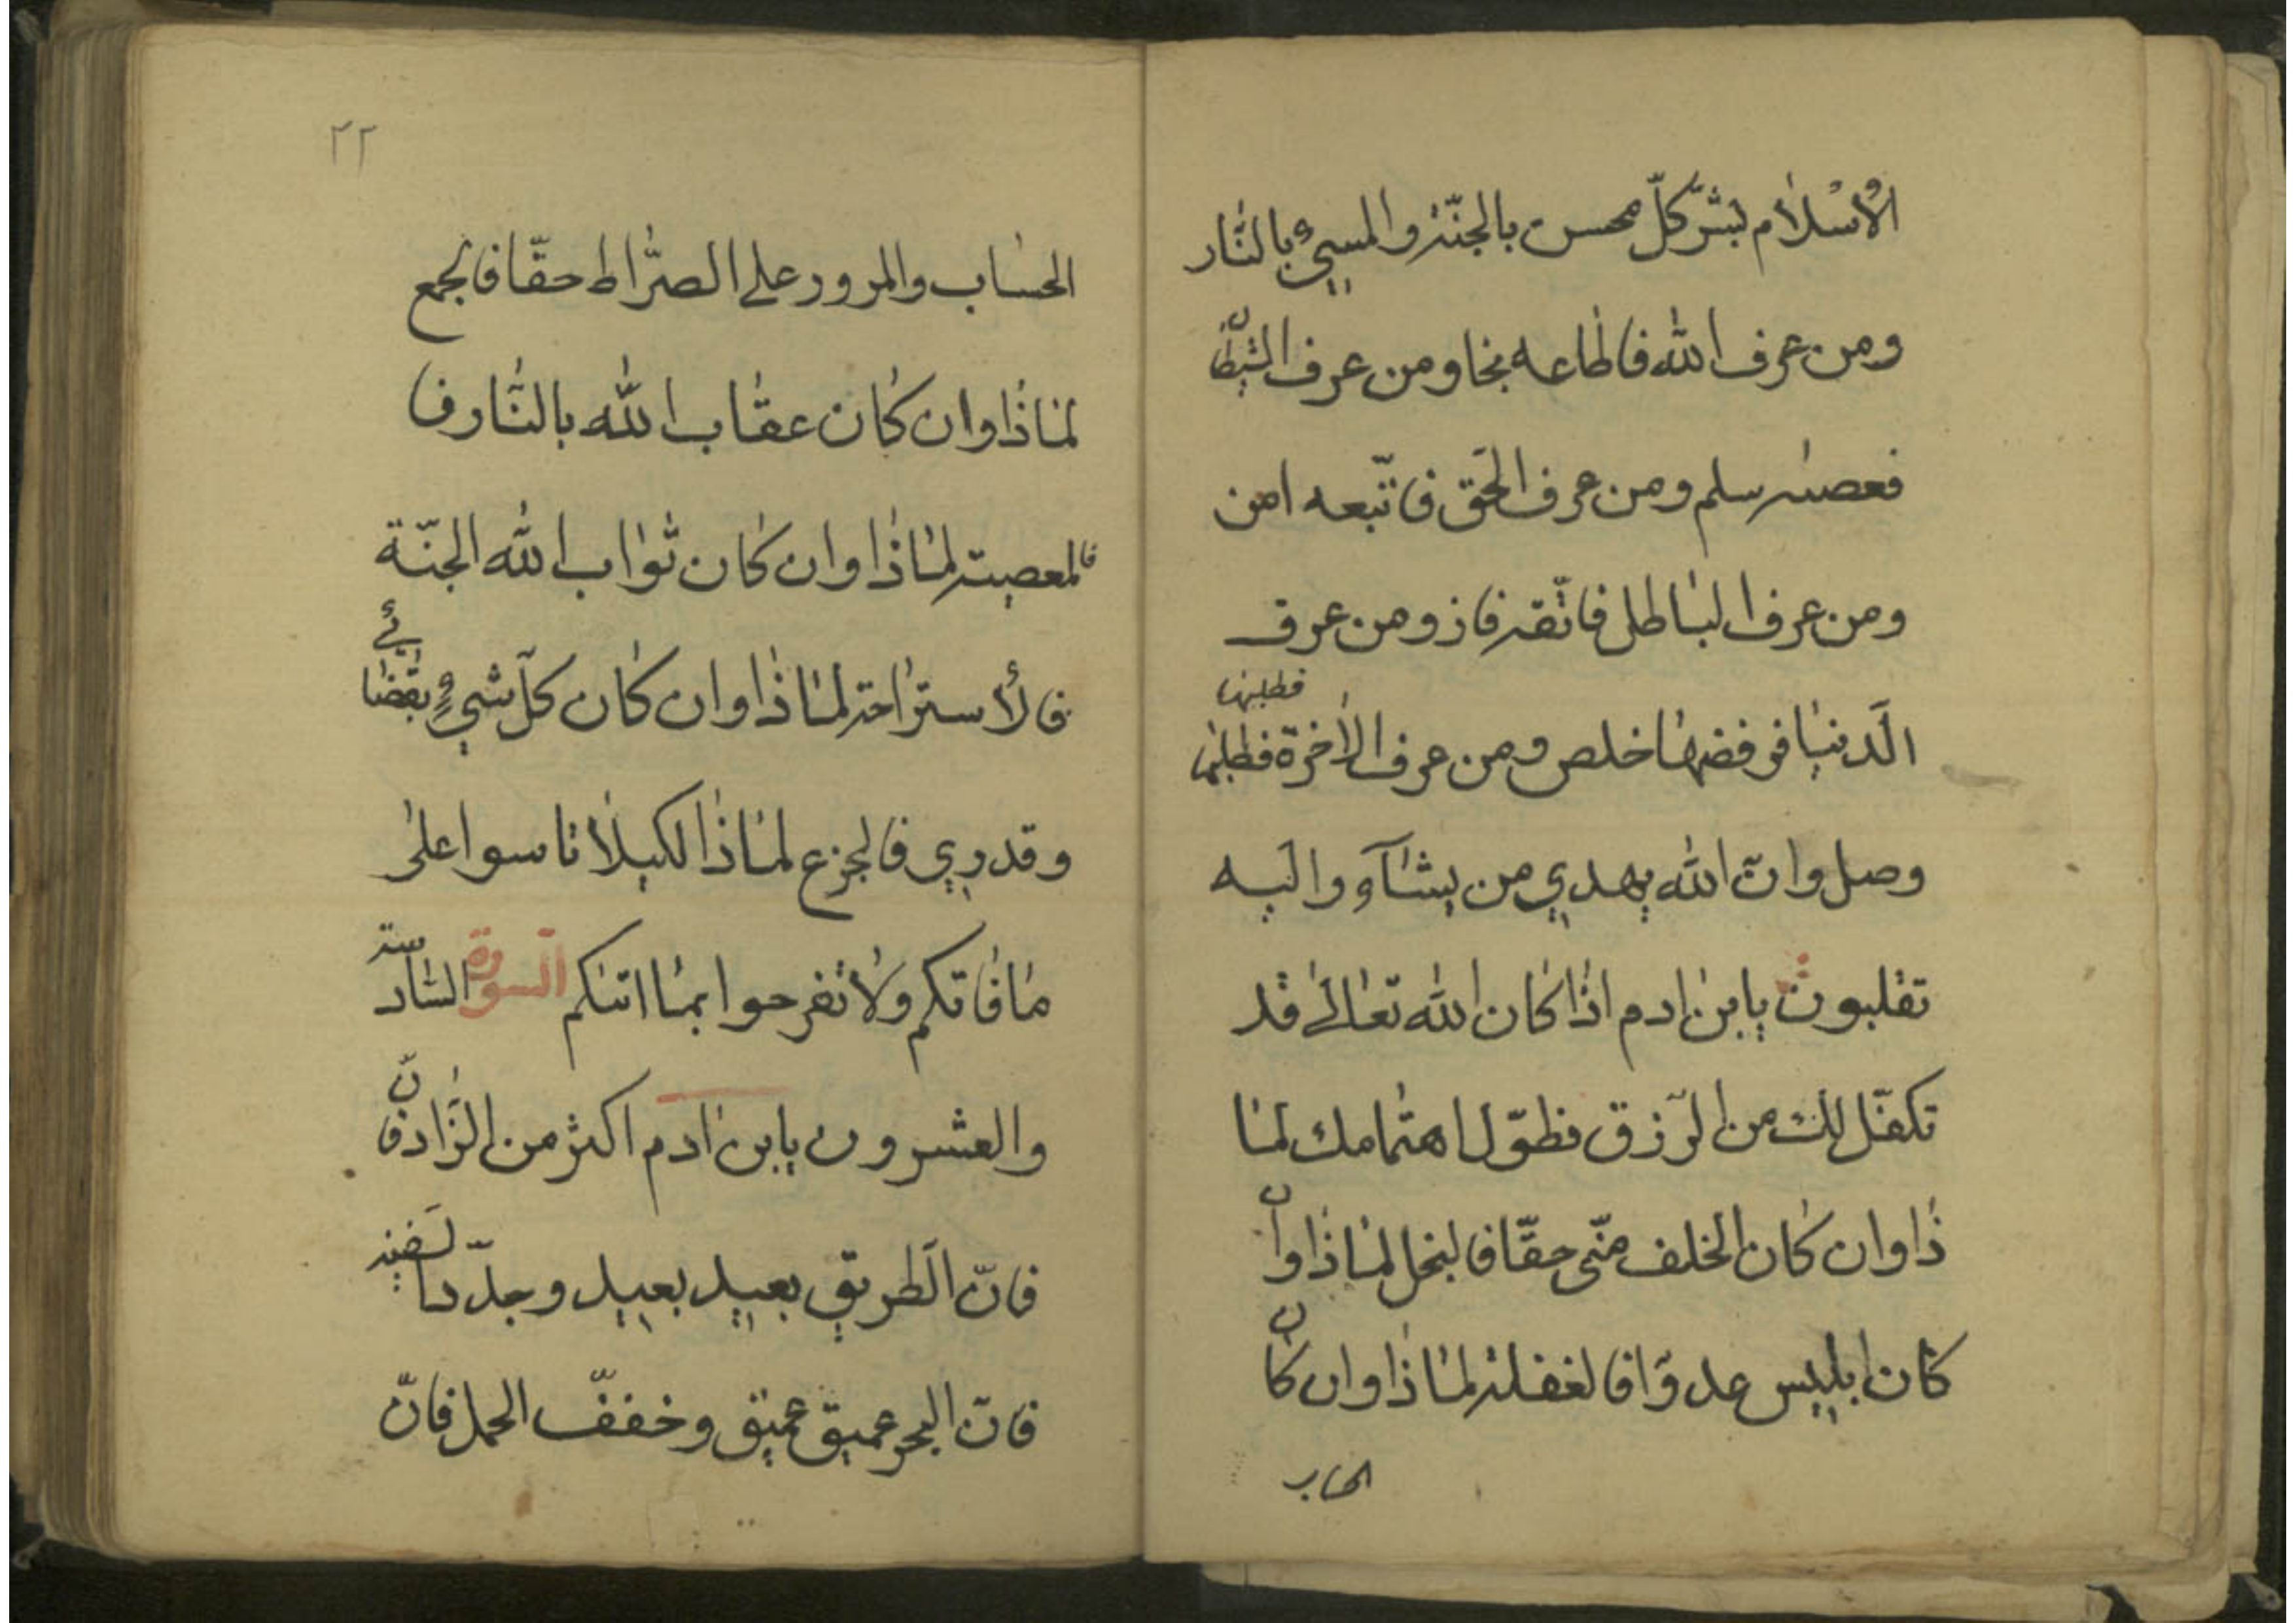 الاسلام بشّر كلّ محسن بالجنّة والمسيئ بالنّار
ومن عرف الله فاطاعه نجا ومن عرف الشيطان
فعصاه سلم ومن عرف الحق فاتّبعه امن
ومن عرف الباطل فاتّقه فاز ومن عرف
فطلبها
الدنيا فرفضها خلص ومن عرف الاخرة فطلبها
وصل وانّ الله يهدي من يشآء واليه
تقلبون يابن ادم اذا كان الله تعالى قد
تكفّل لك من الرّزق فطوّل اهتمامك لما
ذا وان كان الخلف منّي حقّا فالبخل لماذا وان
كان ابليس عدوّا فالغفلة لماذا وان كان
الحساب
٢٢
الحساب والمرور على الصّراط حقّا فالجمع
لماذا وان كان عقاب الله بالنّار ف
فالمعصية لماذا وان كان ثواب الله الجنّة
فالاستراحة لماذا وان كان كلّ شيءٍ بقضائي
وقدري فالجزع لماذا لكيلا تاسوا على
ما فاتكم ولا تفرحوا بما اتاكم السورة السّادسة
والعشرون يابن ادم اكثر من الزّاد فانّ
فانّ الطريق بعيد بعيد وجدّد السفينة
فانّ البحر عميق عميق وخفّف الحمل فانّ